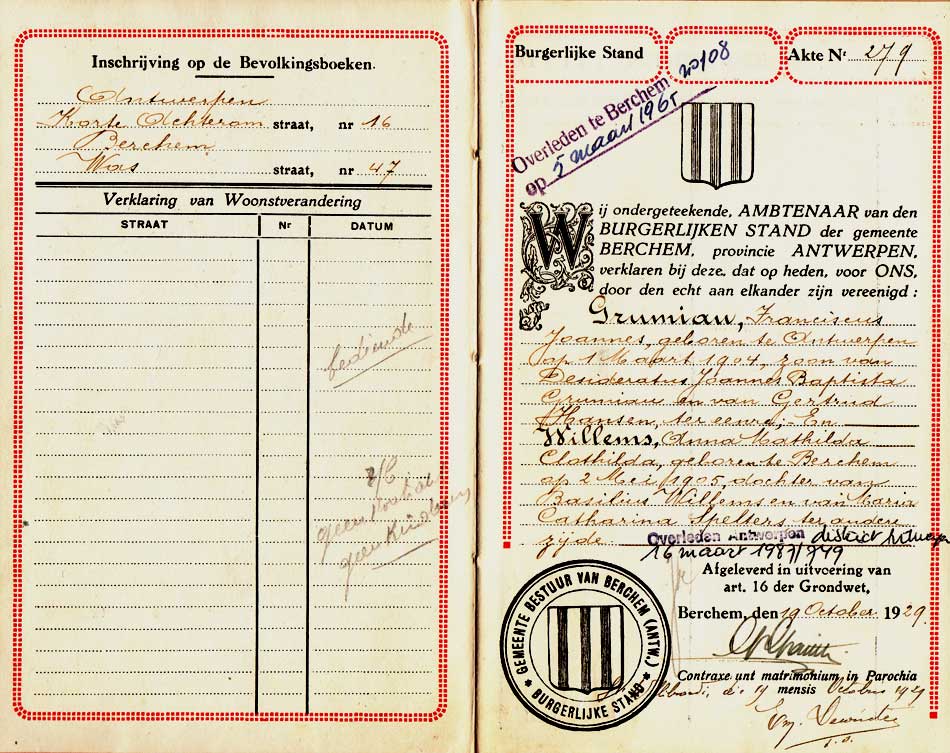 Inschrijving op de Bevolkingsboeken.
Antwerpen
Korte Achterom straat, nr 16
Berchem
Was straat, nr 47
Verklaring van Woonstverandering
STRAAT Nr DATUM
bediende
geen
geen Kinderen
Burgerlijke Stand
Akte Nr 279
no 108
Overleden te Berchem
op 5 maart 1965
Wij ondergeteekende, AMBTENAAR van den
BURGERLIJKEN STAND der gemeente
BERCHEM, provincie ANTWERPEN,
verklaren bij deze, dat op heden, voor ONS,
door den echt aan elkander zijn vereenigd :
Grumiau, Franciscus
Joannes, geboren te Antwerpen
op 1 Maart 1904, zoon van
Desideratus Joannes Baptista
Grumiau en van Gertrud
Hansen, ter eenre; En
Willems, Anna Mathilda
Clothilda, geboren te Berchem
op 2 Mei 1905, dochter van
Basilius Willems en van Maria
Catharina Spelters ter andere
zijde
Overleden Antwerpen district Antwerpen
16 maart 1987/749
Afgeleverd in uitvoering van
art. 16 der Grondwet,
Berchem, den 19 October 1929.
GEMEENTE BESTUUR VAN BERCHEM (ANTW.)
BURGERLIJKE STAND
Contraxe unt matrimonium in Parochia
die 19 mensis Octobris 1929